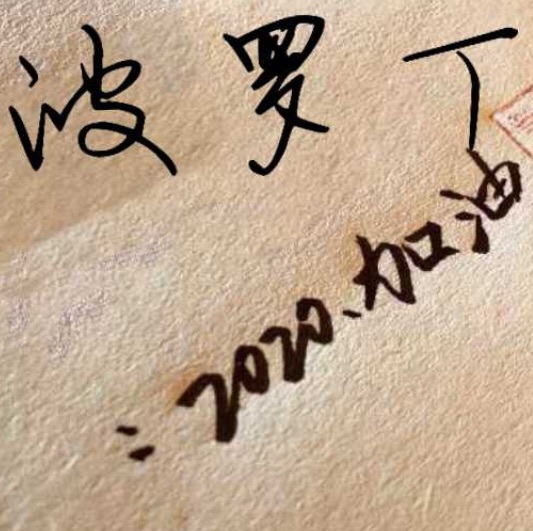 波罗丁
：2020、加油